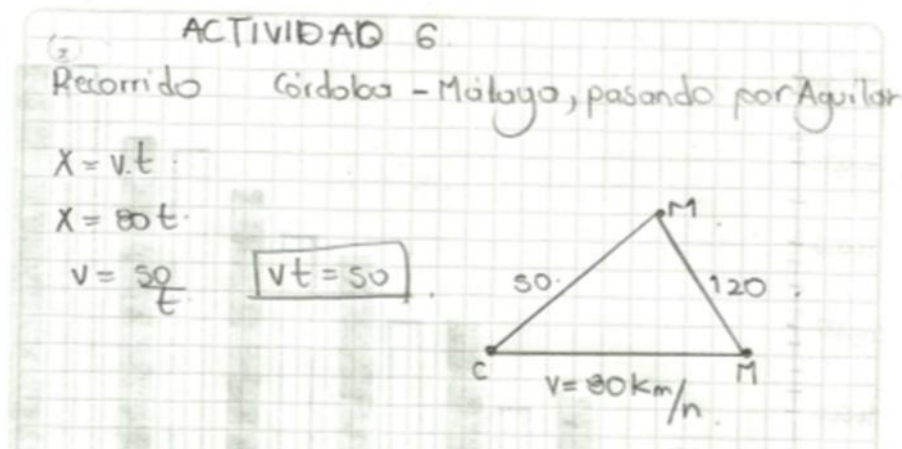 ACTIVIDAD 6
2
Recorrido Córdoba - Málaga, pasando por Aguilar
X = v.t.
X = 80t.
v = 50/t
vt = 50
M
50.
120
C
M
v= 80km/h.